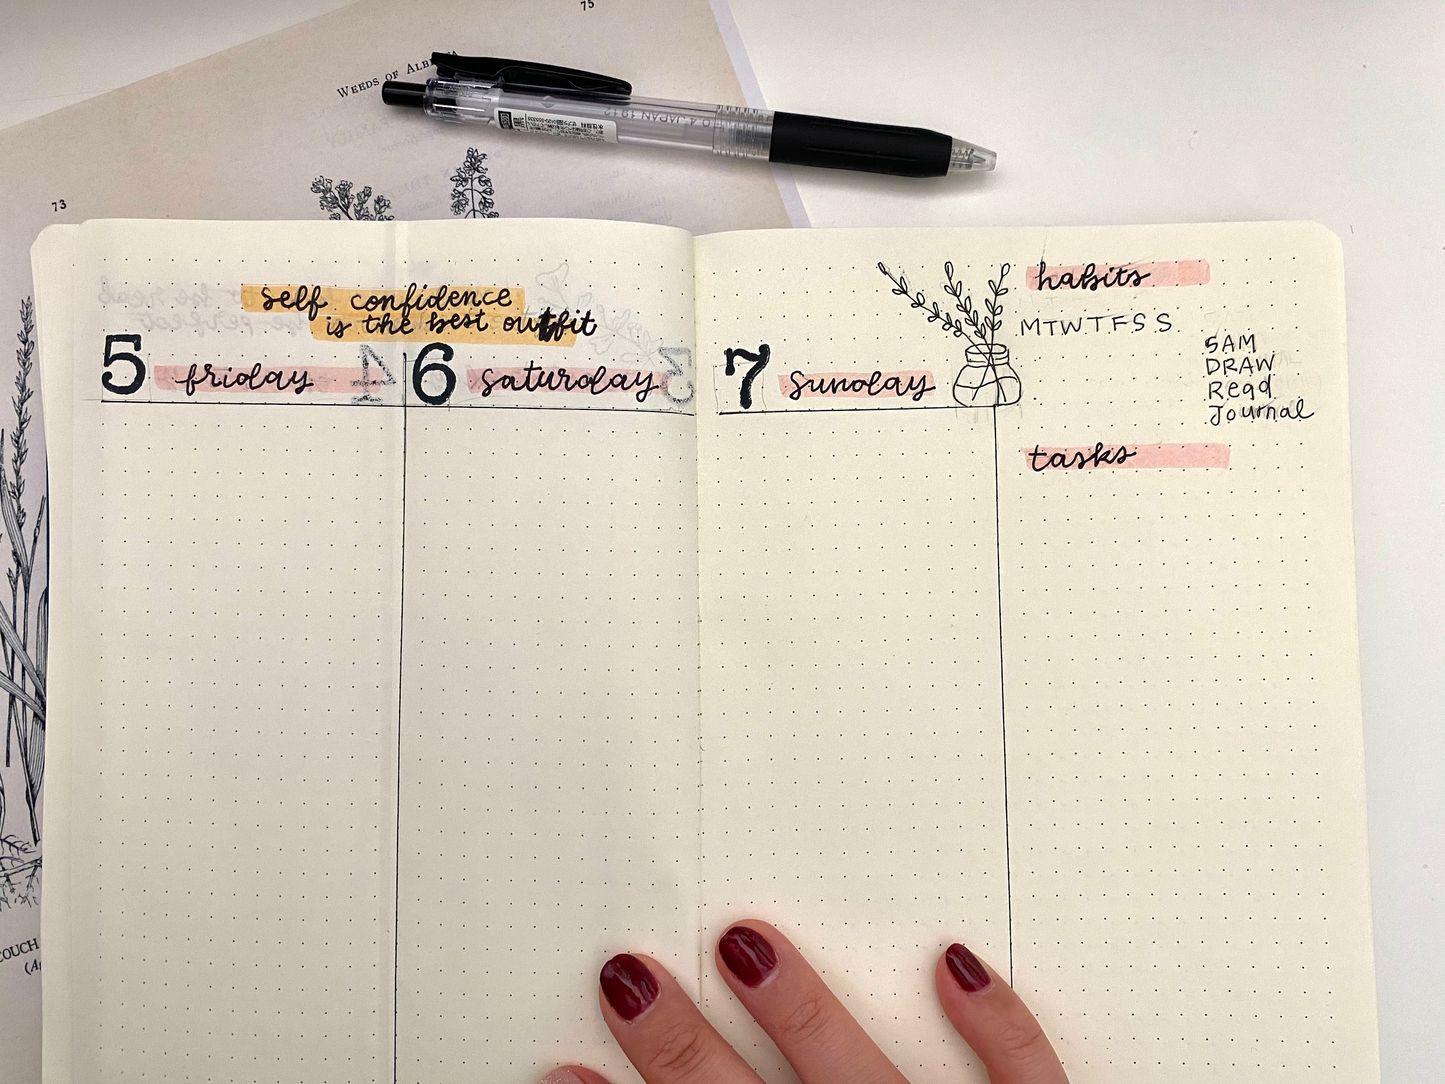 75
WEEDS OF
73
self confidence
is the best outfit
5 friday
6 saturday
7 sunday
habits
MTWTFSS
5AM
DRAW
Read
Journal
tasks
0.4 JAPAN
COUCH
4
3